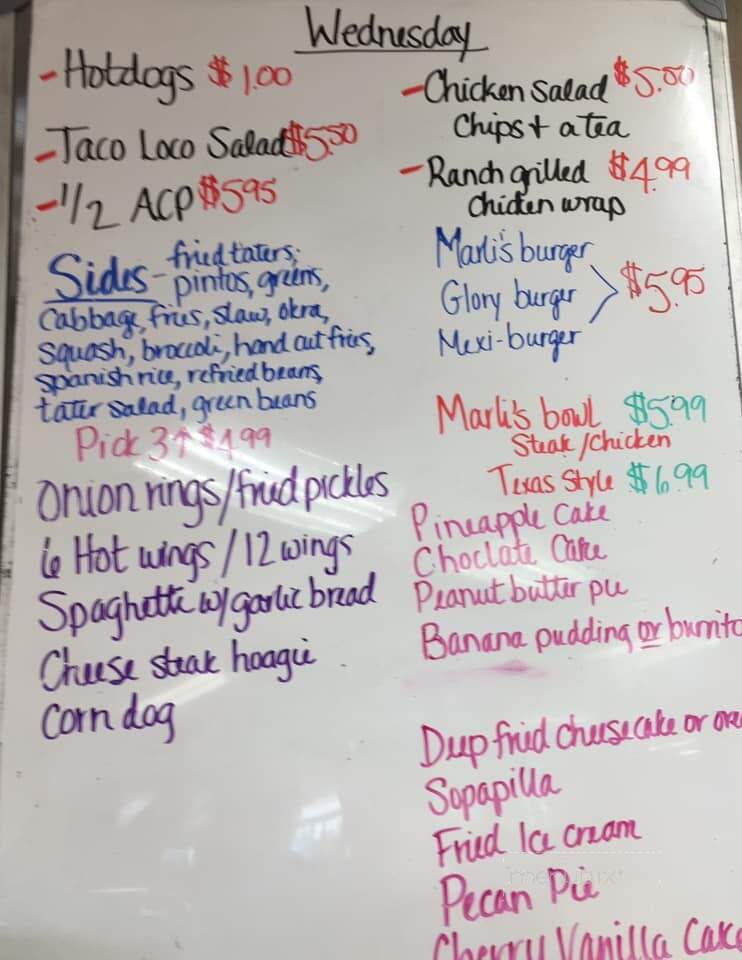 Wednesday
- Hotdogs $1.00
- Taco Loco Salad $5.50
- 1/2 ACP $5.95
Sides - fried taters,
pintos, greens,
Cabbage, fries, slaw, okra,
squash, broccoli, hand cut fries,
spanish rice, refried beans,
tater salad, green beans
Pick 3↑ $4.99
Onion rings/fried pickles
6 Hot wings / 12 wings
Spaghetti w/garlic bread
Cheese steak hoagie
Corn dog
- Chicken Salad $5.00
Chips + a tea
- Ranch grilled $4.99
Chicken wrap
Marli's burger
Glory burger > $5.95
Mexi-burger
Marli's bowl $5.99
Steak/Chicken
Texas Style $6.99
Pineapple Cake
Choclate Cake
Peanut butter pie
Banana pudding or burrito
Deep fried cheesecake or
Sopapilla
Fried Ice cream
Pecan Pie
Cherry Vanilla Cake